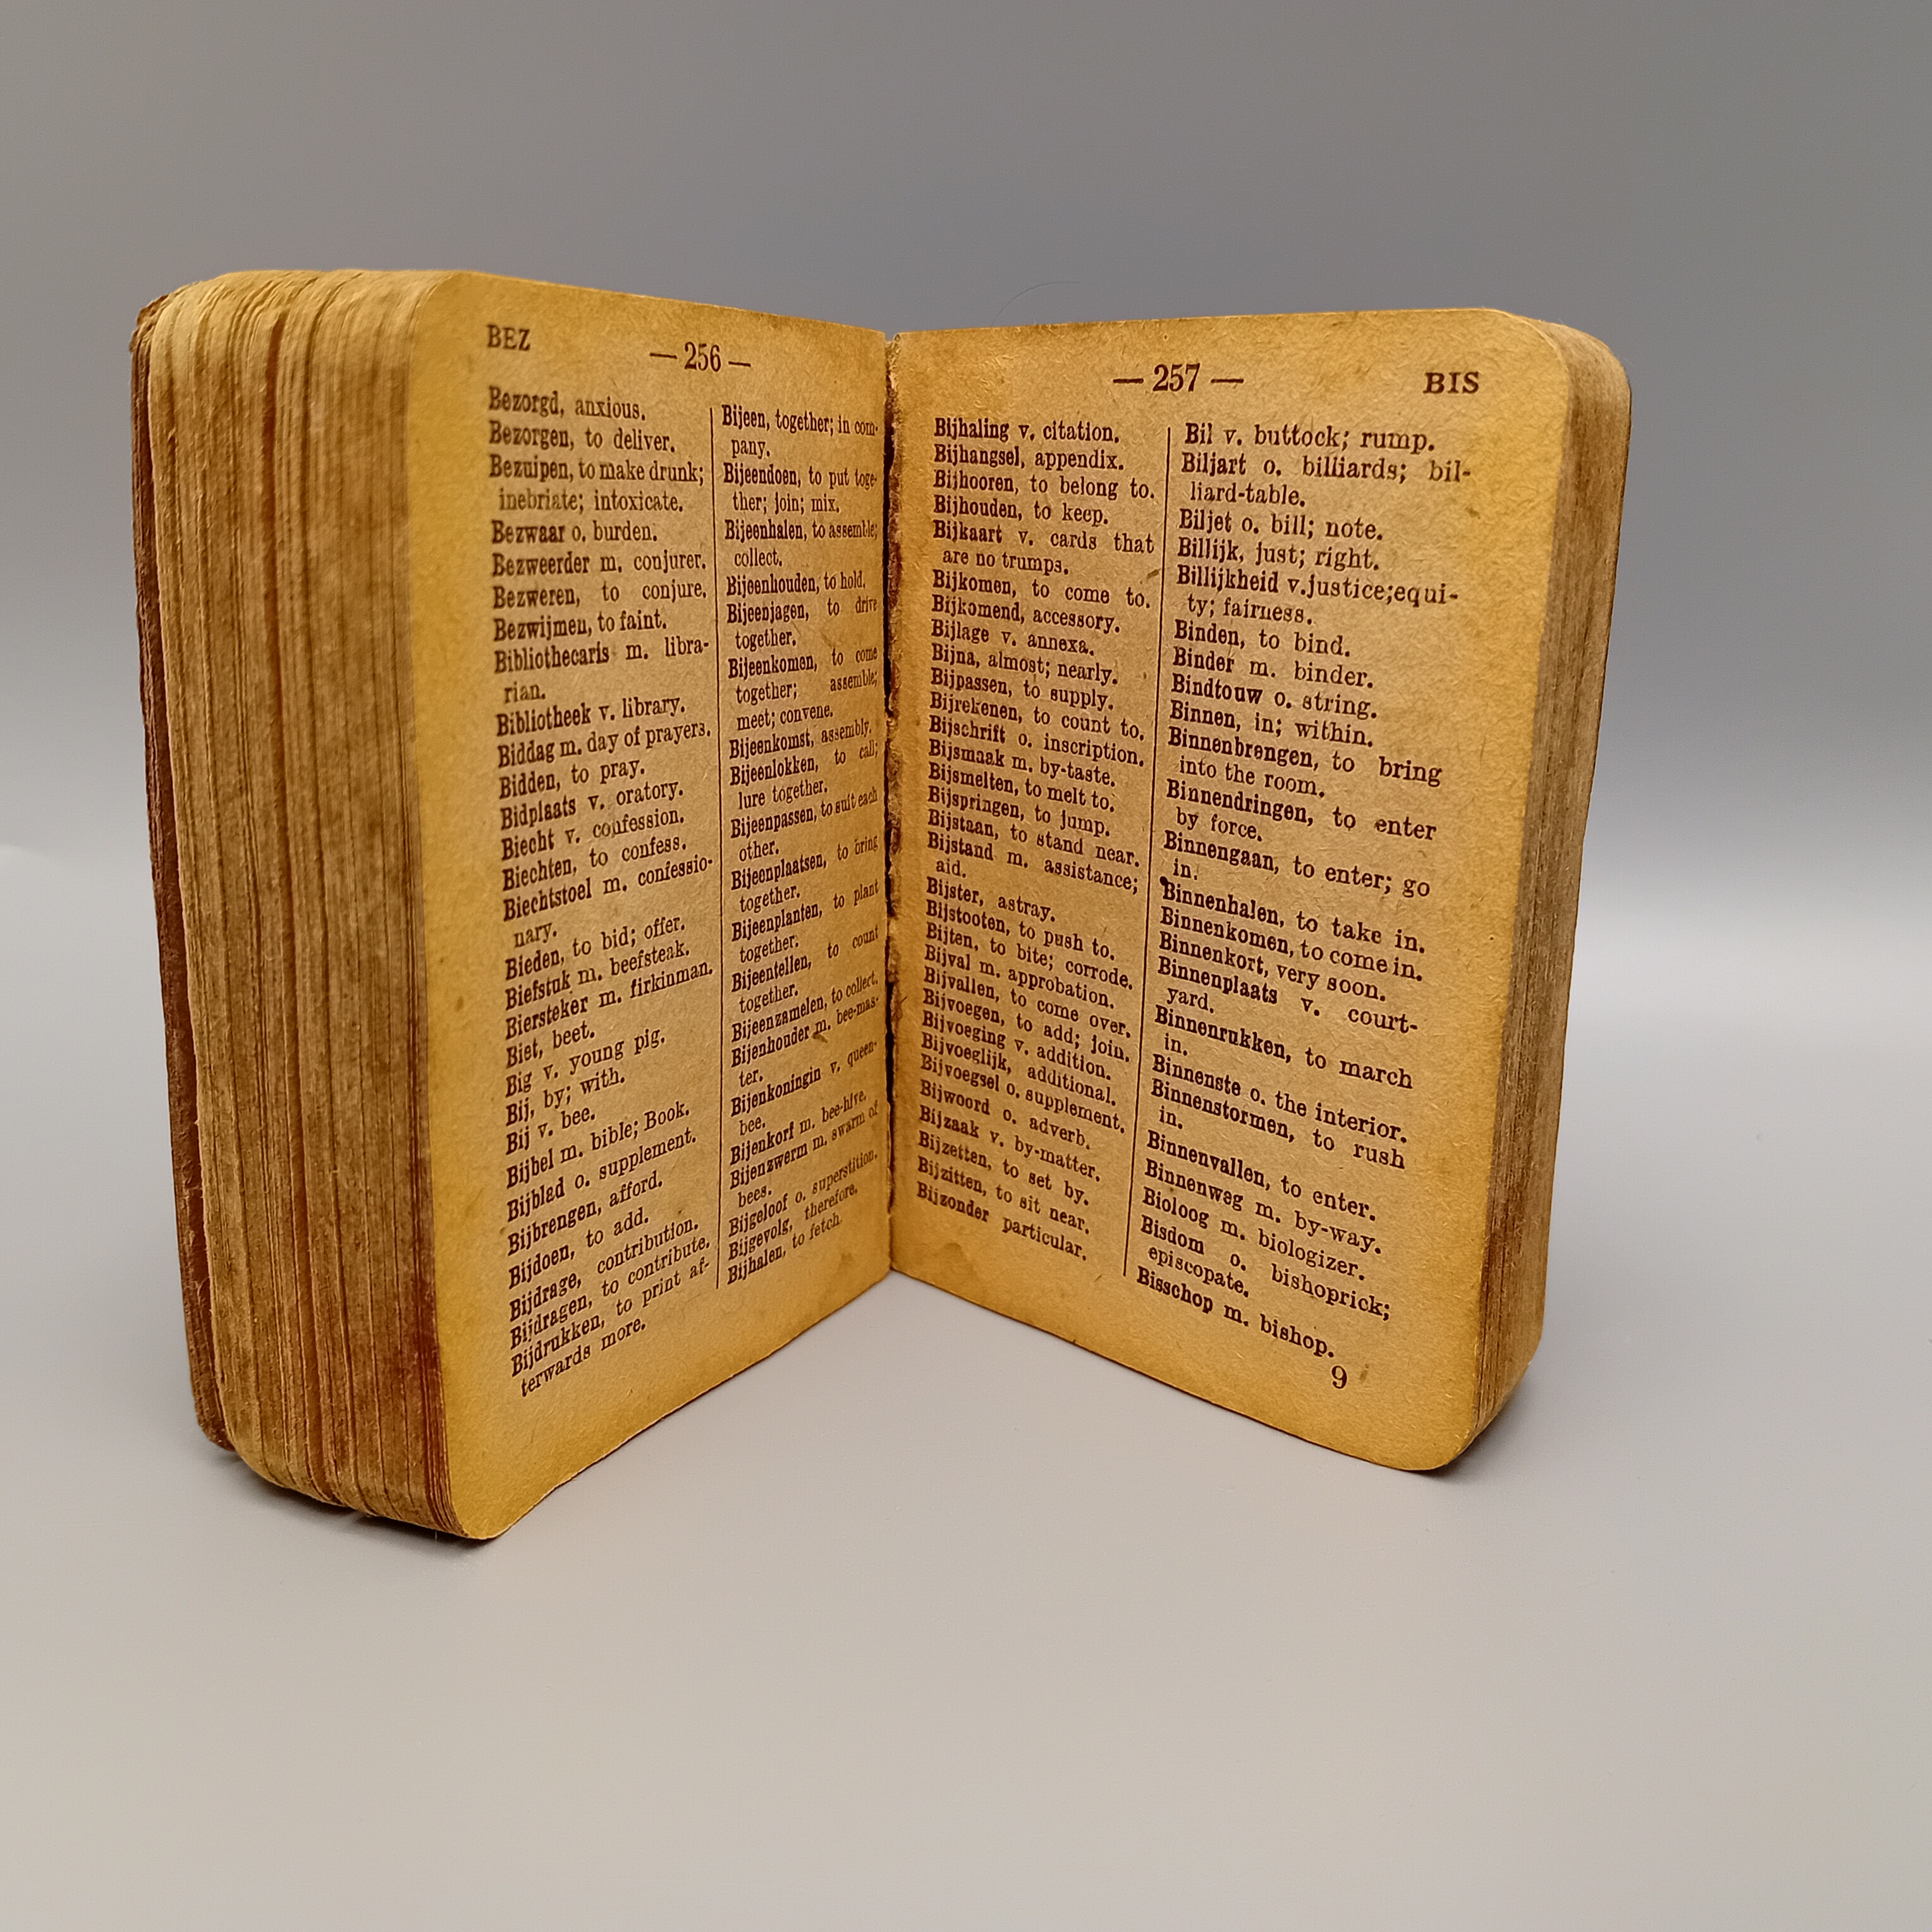 BEZ
— 256 —
Bezorgd, anxious.
Bezorgen, to deliver.
Bezuipen, to make drunk;
inebriate; intoxicate.
Bezwaar o. burden.
Bezweerder m. conjurer.
Bezweren, to conjure.
Bezwijmen, to faint.
Bibliothecaris m. libra-
rian.
Bibliotheek v. library.
Biddag m. day of prayers.
Bidden, to pray.
Bidplaats v. oratory.
Biecht v. confession.
Biechten, to confess.
Biechtstoel m. confessio-
nary.
Bieden, to bid; offer.
Biefstuk m. beefsteak.
Biersteker m. firkinman.
Biet, beet.
Big v. young pig.
Bij, by; with.
Bij v. bee.
Bijbel m. bible; Book.
Bijblad o. supplement.
Bijbrengen, afford.
Bijdoen, to add.
Bijdrage, contribution.
Bijdragen, to contribute.
Bijdrukken, to print af-
terwards more.
Bijeen, together; in com-
pany.
Bijeendoen, to put toge-
ther; join; mix.
Bijeenhalen, to assemble;
collect.
Bijeenhouden, to hold.
Bijeenjagen, to drive
together.
Bijeenkomen, to come
together; assemble;
meet; convene.
Bijeenkomst, assembly.
Bijeenlokken, to call;
lure together.
Bijeenpassen, to suit each
other.
Bijeenplaatsen, to bring
together.
Bijeenplanten, to plant
together.
Bijeentellen, to count
together.
Bijeenzamelen, to collect.
Bijenhouder m. bee-mas-
ter.
Bijenkoningin v. queen-
bee.
Bijenkorf m. bee-hive.
Bijenzwerm m. swarm of
bees.
Bijgeloof o. superstition.
Bijgevolg, therefore.
Bijhalen, to fetch.
— 257 —
BIS
Bijhaling v. citation.
Bijhangsel, appendix.
Bijhooren, to belong to.
Bijhouden, to keep.
Bijkaart v. cards that
are no trumps.
Bijkomen, to come to.
Bijkomend, accessory.
Bijlage v. annexa.
Bijna, almost; nearly.
Bijpassen, to supply.
Bijrekenen, to count to.
Bijschrift o. inscription.
Bijsmaak m. by-taste.
Bijsmelten, to melt to.
Bijspringen, to jump.
Bijstaan, to stand near.
Bijstand m. assistance;
aid.
Bijster, astray.
Bijstooten, to push to.
Bijten, to bite; corrode.
Bijval m. approbation.
Bijvallen, to come over.
Bijvoegen, to add; join.
Bijvoeging v. addition.
Bijvoeglijk, additional.
Bijvoegsel o. supplement.
Bijwoord o. adverb.
Bijzaak v. by-matter.
Bijzetten, to set by.
Bijzitten, to sit near.
Bijzonder particular.
Bil v. buttock; rump.
Biljart o. billiards; bil-
liard-table.
Biljet o. bill; note.
Billijk, just; right.
Billijkheid v.justice;equi-
ty; fairness.
Binden, to bind.
Binder m. binder.
Bindtouw o. string.
Binnen, in; within.
Binnenbrengen, to bring
into the room.
Binnendringen, to enter
by force.
Binnengaan, to enter; go
in.
Binnenhalen, to take in.
Binnenkomen, to come in.
Binnenkort, very soon.
Binnenplaats v. court-
yard.
Binnenrukken, to march
in.
Binnenste o. the interior.
Binnenstormen, to rush
in.
Binnenvallen, to enter.
Binnenweg m. by-way.
Bioloog m. biologizer.
Bisdom o. bishoprick;
episcopate.
Bisschop m. bishop.
9